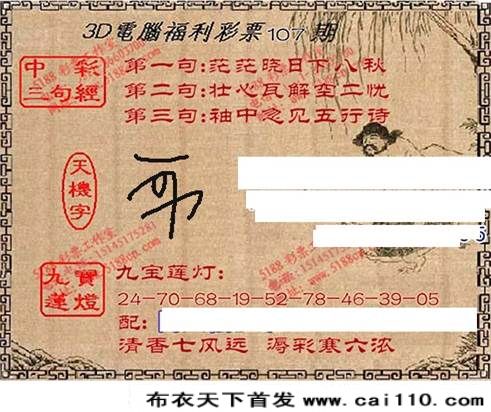 3D電腦福利彩票107期
中彩
三句經
第一句:茫茫晓日下八秋
第二句:壮心瓦解空二忧
第三句:袖中忽见五行诗
天機字
九寶
蓮燈
九宝莲灯:
24-70-68-19-52-78-46-39-05
配:
清香七风远 溽彩寒六浓
布衣天下首发 www.cai110.com